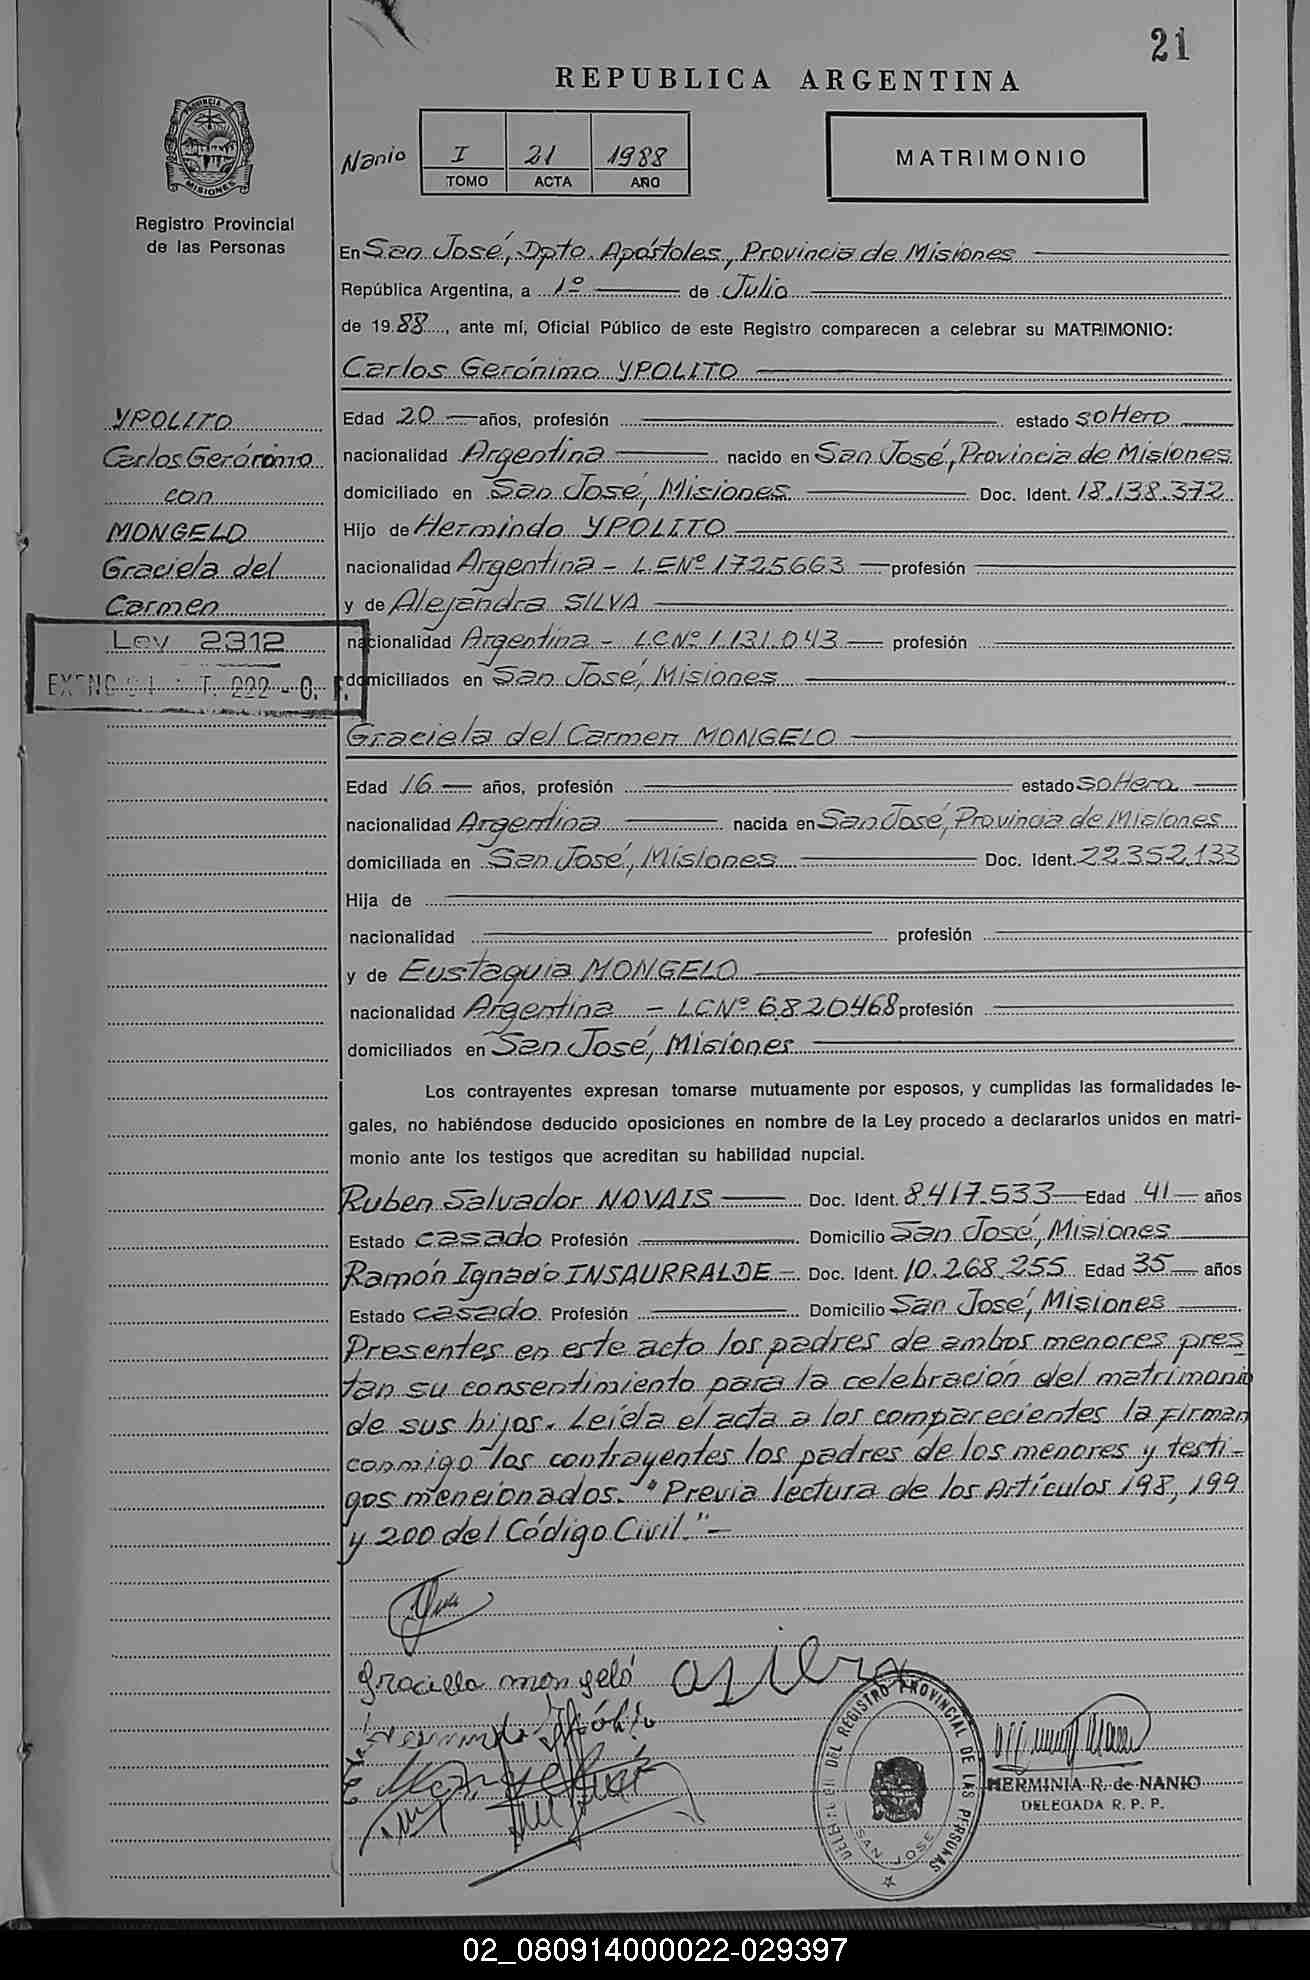 21
REPUBLICA ARGENTINA
PROVINCIA DE
MISIONES
Registro Provincial
de las Personas
Nanio
I 21 1988
TOMO ACTA AÑO
MATRIMONIO
En San José, Dpto. Apóstoles, Provincia de Misiones
República Argentina, a 1º de Julio
de 19 88, ante mí, Oficial Público de este Registro comparecen a celebrar su MATRIMONIO:
Carlos Gerónimo YPOLITO
YPOLITO
Carlos Gerónimo
con
MONGELO
Graciela del
Carmen
Ley 2312
Edad 20 años, profesión estado soltero
nacionalidad Argentina nacido en San José, Provincia de Misiones
domiciliado en San José, Misiones Doc. Ident. 18.138.372
Hijo de Hermindo YPOLITO
nacionalidad Argentina - L.E Nº 1725663 profesión
y de Alejandra SILVA
nacionalidad Argentina - L.C Nº 1.131.043 profesión
domiciliados en San José, Misiones
Graciela del Carmen MONGELO
Edad 16 años, profesión estado soltera
nacionalidad Argentina nacida en San José, Provincia de Misiones
domiciliada en San José, Misiones Doc. Ident. 22352.133
Hija de
nacionalidad profesión
y de Eustaquia MONGELO
nacionalidad Argentina - LC Nº 6.820468 profesión
domiciliados en San José, Misiones
Los contrayentes expresan tomarse mutuamente por esposos, y cumplidas las formalidades le-
gales, no habiéndose deducido oposiciones en nombre de la Ley procedo a declararlos unidos en matri-
monio ante los testigos que acreditan su habilidad nupcial.
Ruben Salvador NOVAIS Doc. Ident. 8.417.533 Edad 41 años
Estado casado Profesión Domicilio San José, Misiones
Ramón Ignacio INSAURRALDE Doc. Ident. 10.268.255 Edad 35 años
Estado casado Profesión Domicilio San José, Misiones
Presentes en este acto los padres de ambos menores pres
tan su consentimiento para la celebración del matrimonio
de sus hijos. Leída el acta a los comparecientes la firman
conmigo los contrayentes los padres de los menores y testi-
gos mencionados. "Previa lectura de los Artículos 198, 199
y 200 del Código Civil."
Graciela mongeló
DEL REGISTRO PROVINCIAL DE LAS PERSONAS
SAN JOSE
HERMINIA R. de NANIO
DELEGADA R. P. P.
02_080914000022-029397